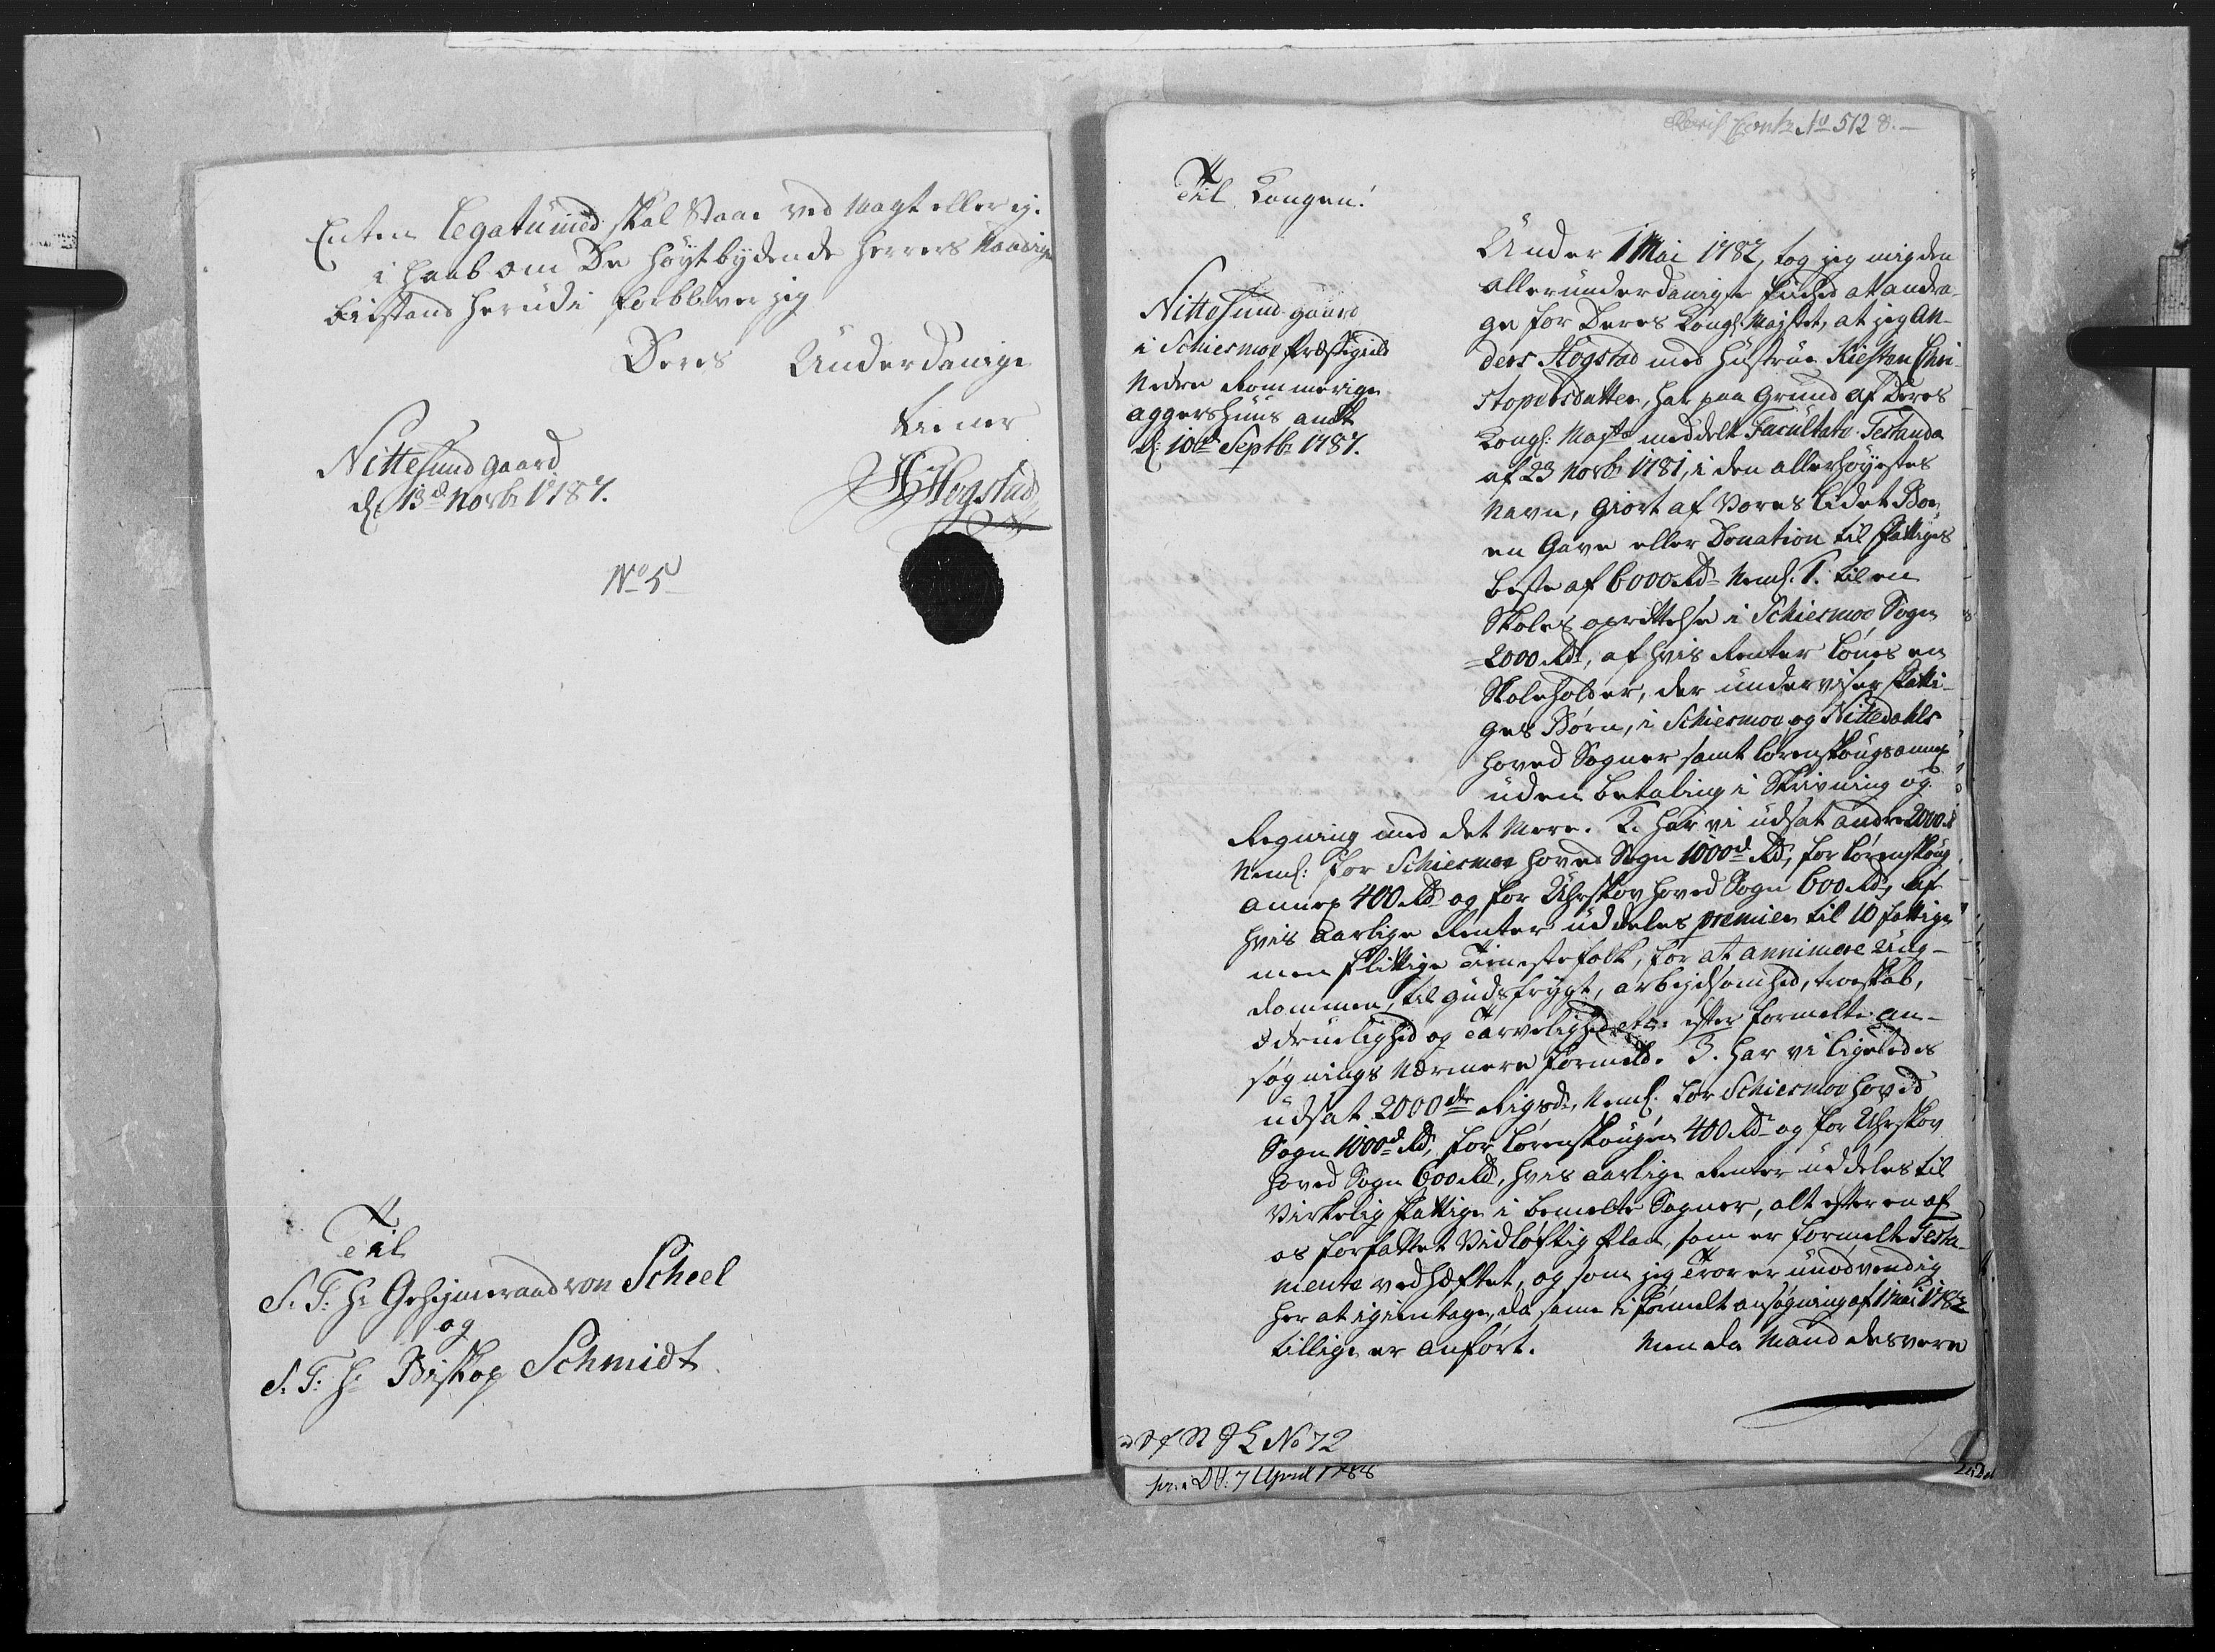 Enten Legatumed skal Staae ved Magt eller ej.
i Haab om De Høytbydende Herrers Naadige
bistand herudi forbliver jeg
Deres Underdanige
tiener
Nittesund gaard
d: 13de Novbr 1787.
AHogstad
No 5
Til
S. T. Hr Geheimeraad von Scheel
og
S. T. Hr Biskop Schmidt
No 512 8.
Til Kongen!
Nittesund gaard
i Schiesmoe Præstegield
Nedre Rommerige
aggershuus amt
d: 10de Septbr 1787.
Under 1 Mai 1782, tog jeg mig den
allerunderdanigste friehed at andra-
ge for Deres Kongl: Majstet, at jeg An-
ders Hogstad med hustrue Kiesten Chri-
stophersdatter, har paa Grund af Deres
Kongl: Mayts meddelt Facultats Testanda
af 23 Novbr 1781, i den allerhøyestes
Navn, Giort af Vores lidet Boe
en Gave eller Donation til fattiges
beste af 6000 Rd. Neml. 1. til en
Skoles oprettelse i Schiesmoe Sogn
2000 Rd, af hvis Renter lønes en
Skoleholder, der underviser fatti-
ges Børn, i Schiesmoe og Nittedahls
hoved Sogner samt Lørenskougs annex
uden betaling i Skrivning og
Regning med det Mere. 2. har vi udsat andre 2000
Neml: for Schiesmoe hoved Sogn 1000de Rd, for Lørenskoug
annex 400 Rd og for Uhrskov hoved Sogn 600 Rd, af
hvis aarlige Renter uddeles premier til 10 fattige
men flittige Tienestefolk, for at annimere ung-
dommen, til gudsfrygt, arbeydsomhed, troeskab,
ædruelighed og Tarvelighed etc: efter formelte an-
søgnings Nærmere formeld. 3. har vi ligeledes
udsat 2000de Rigsd, Neml: for Schiesmoe hoved
Sogn 1000de Rd, for Lørenskougen 400 Rd og for Uhrskov
hoved Sogn 600 Rd, hvis aarlige Renter uddeles til
Virkelig fattige i bemelte Sogner, alt efter en af
os forfattet Vidløftig Plan, som er formelte Testa-
mente vedhæftet, og som jeg Troer er unødvendig
her at igientage, da same i formelt ansøgning af 1 Mai 1782
tillige er anført. Men da Mand desverre
No 72
pr. i D V: 7 April 1788